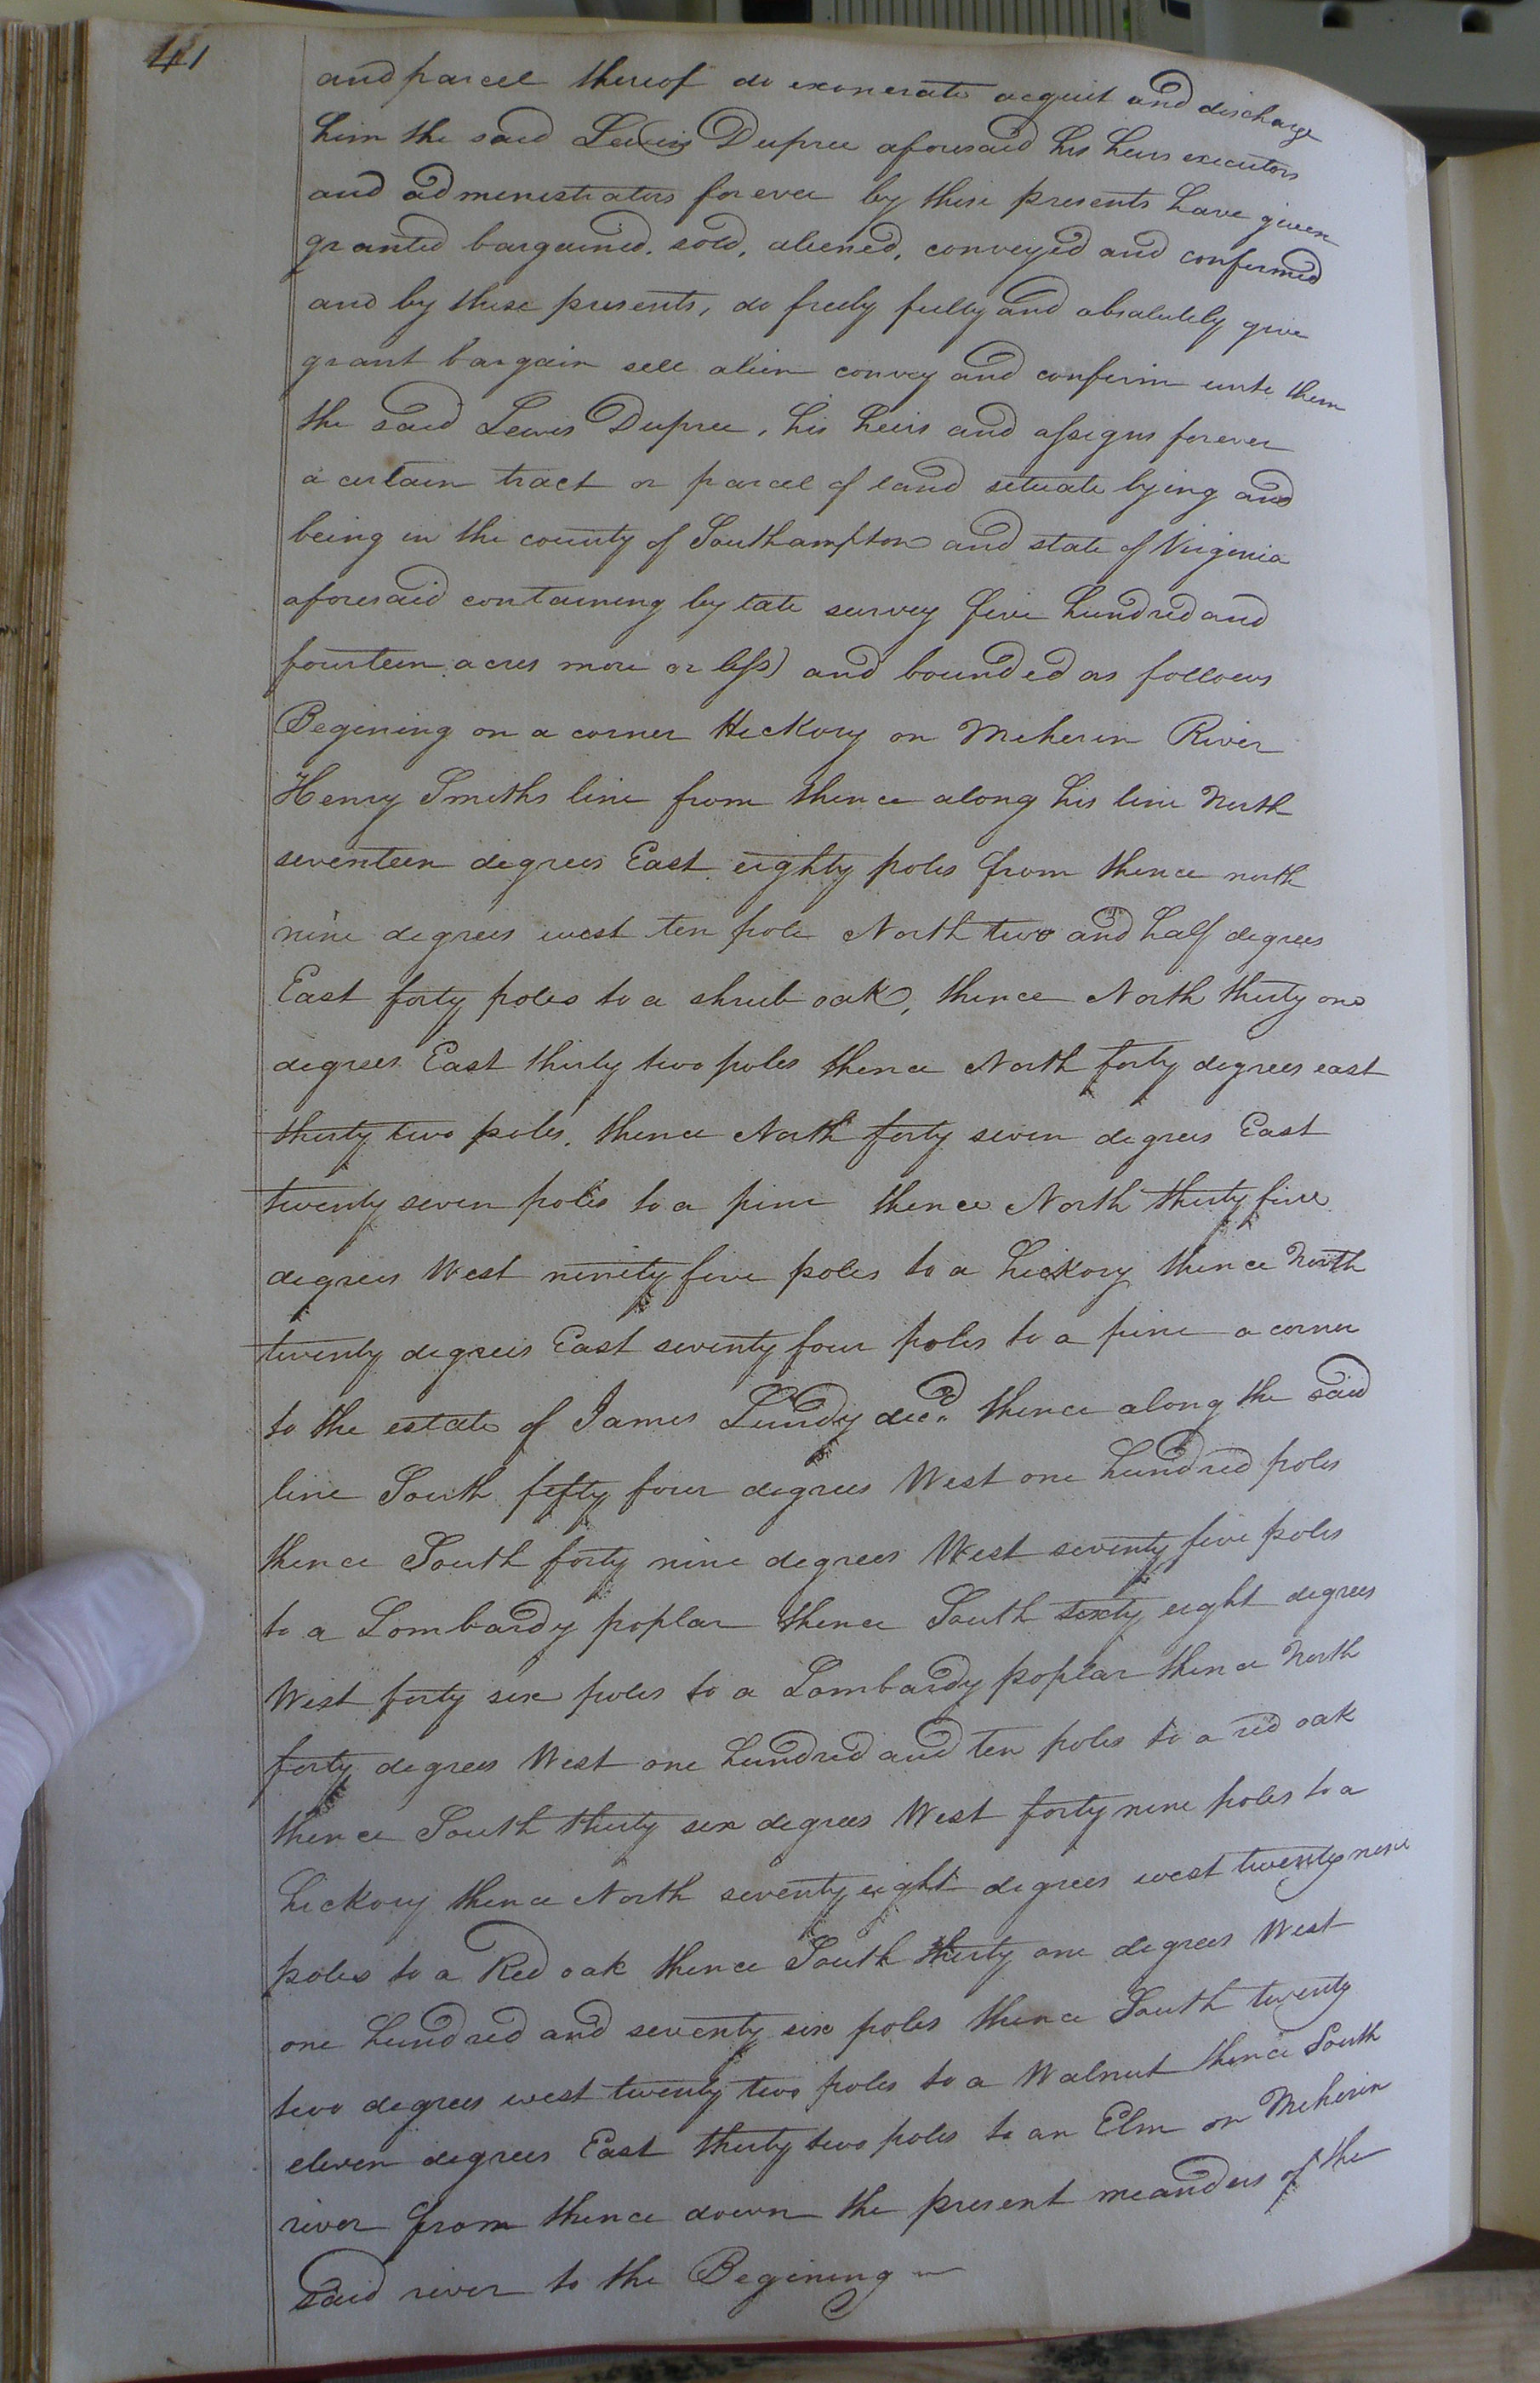 41
and parcel thereof do exonerate acquit and discharge
him the said Lewis Dupree aforesaid his heirs executors
and administrators forever by these presents have given
granted bargained. sold, aliened, conveyed and confirmed
and by these presents, do freely fully and absalutely give
grant bargain sell alien convey and confirm unto them
the said Lewis Dupree, his heirs and assigns forever
a certain tract or parcel of land situate lying and
being in the county of Southampton and state of Virginia
aforesaid containing by late survey five hundred and
fourteen acres more or less) and bounded as follows
Begining on a corner Hickory on Meherin River
Henry Smiths line from thence along his line North
seventeen degrees East eighty poles from thence north
nine degrees west ten pole North two and half degrees
East forty poles to a shrub oak, thence North thirty one
degrees East thirty two poles thence North forty degrees east
thirty two poles, thence North forty seven degrees East
twenty seven poles to a pine thence North thirty five
degrees West ninety five poles to a hickory thence North
twenty degrees East seventy four poles to a pine a corner
to the estate of James Lundy decd. thence along the said
line South fifty four degrees West one hundred poles
thence South forty nine degrees West seventy five poles
to a Lombardy poplar thence South sixty eight degrees
West forty six poles to a Lombardy poplar thence North
forty degrees West one hundred and ten poles to a red oak
thence South thirty six degrees West forty nine poles to a
hickory thence North seventy eight degrees west twenty nine
poles to a Red oak thence South thirty one degrees West
one hundred and seventy six poles thence South twenty
two degrees west twenty two poles to a Walnut thence South
eleven degrees East thirty two poles to an Elm on Meherin
river from thence down the present meanders of the
said river to the Begining